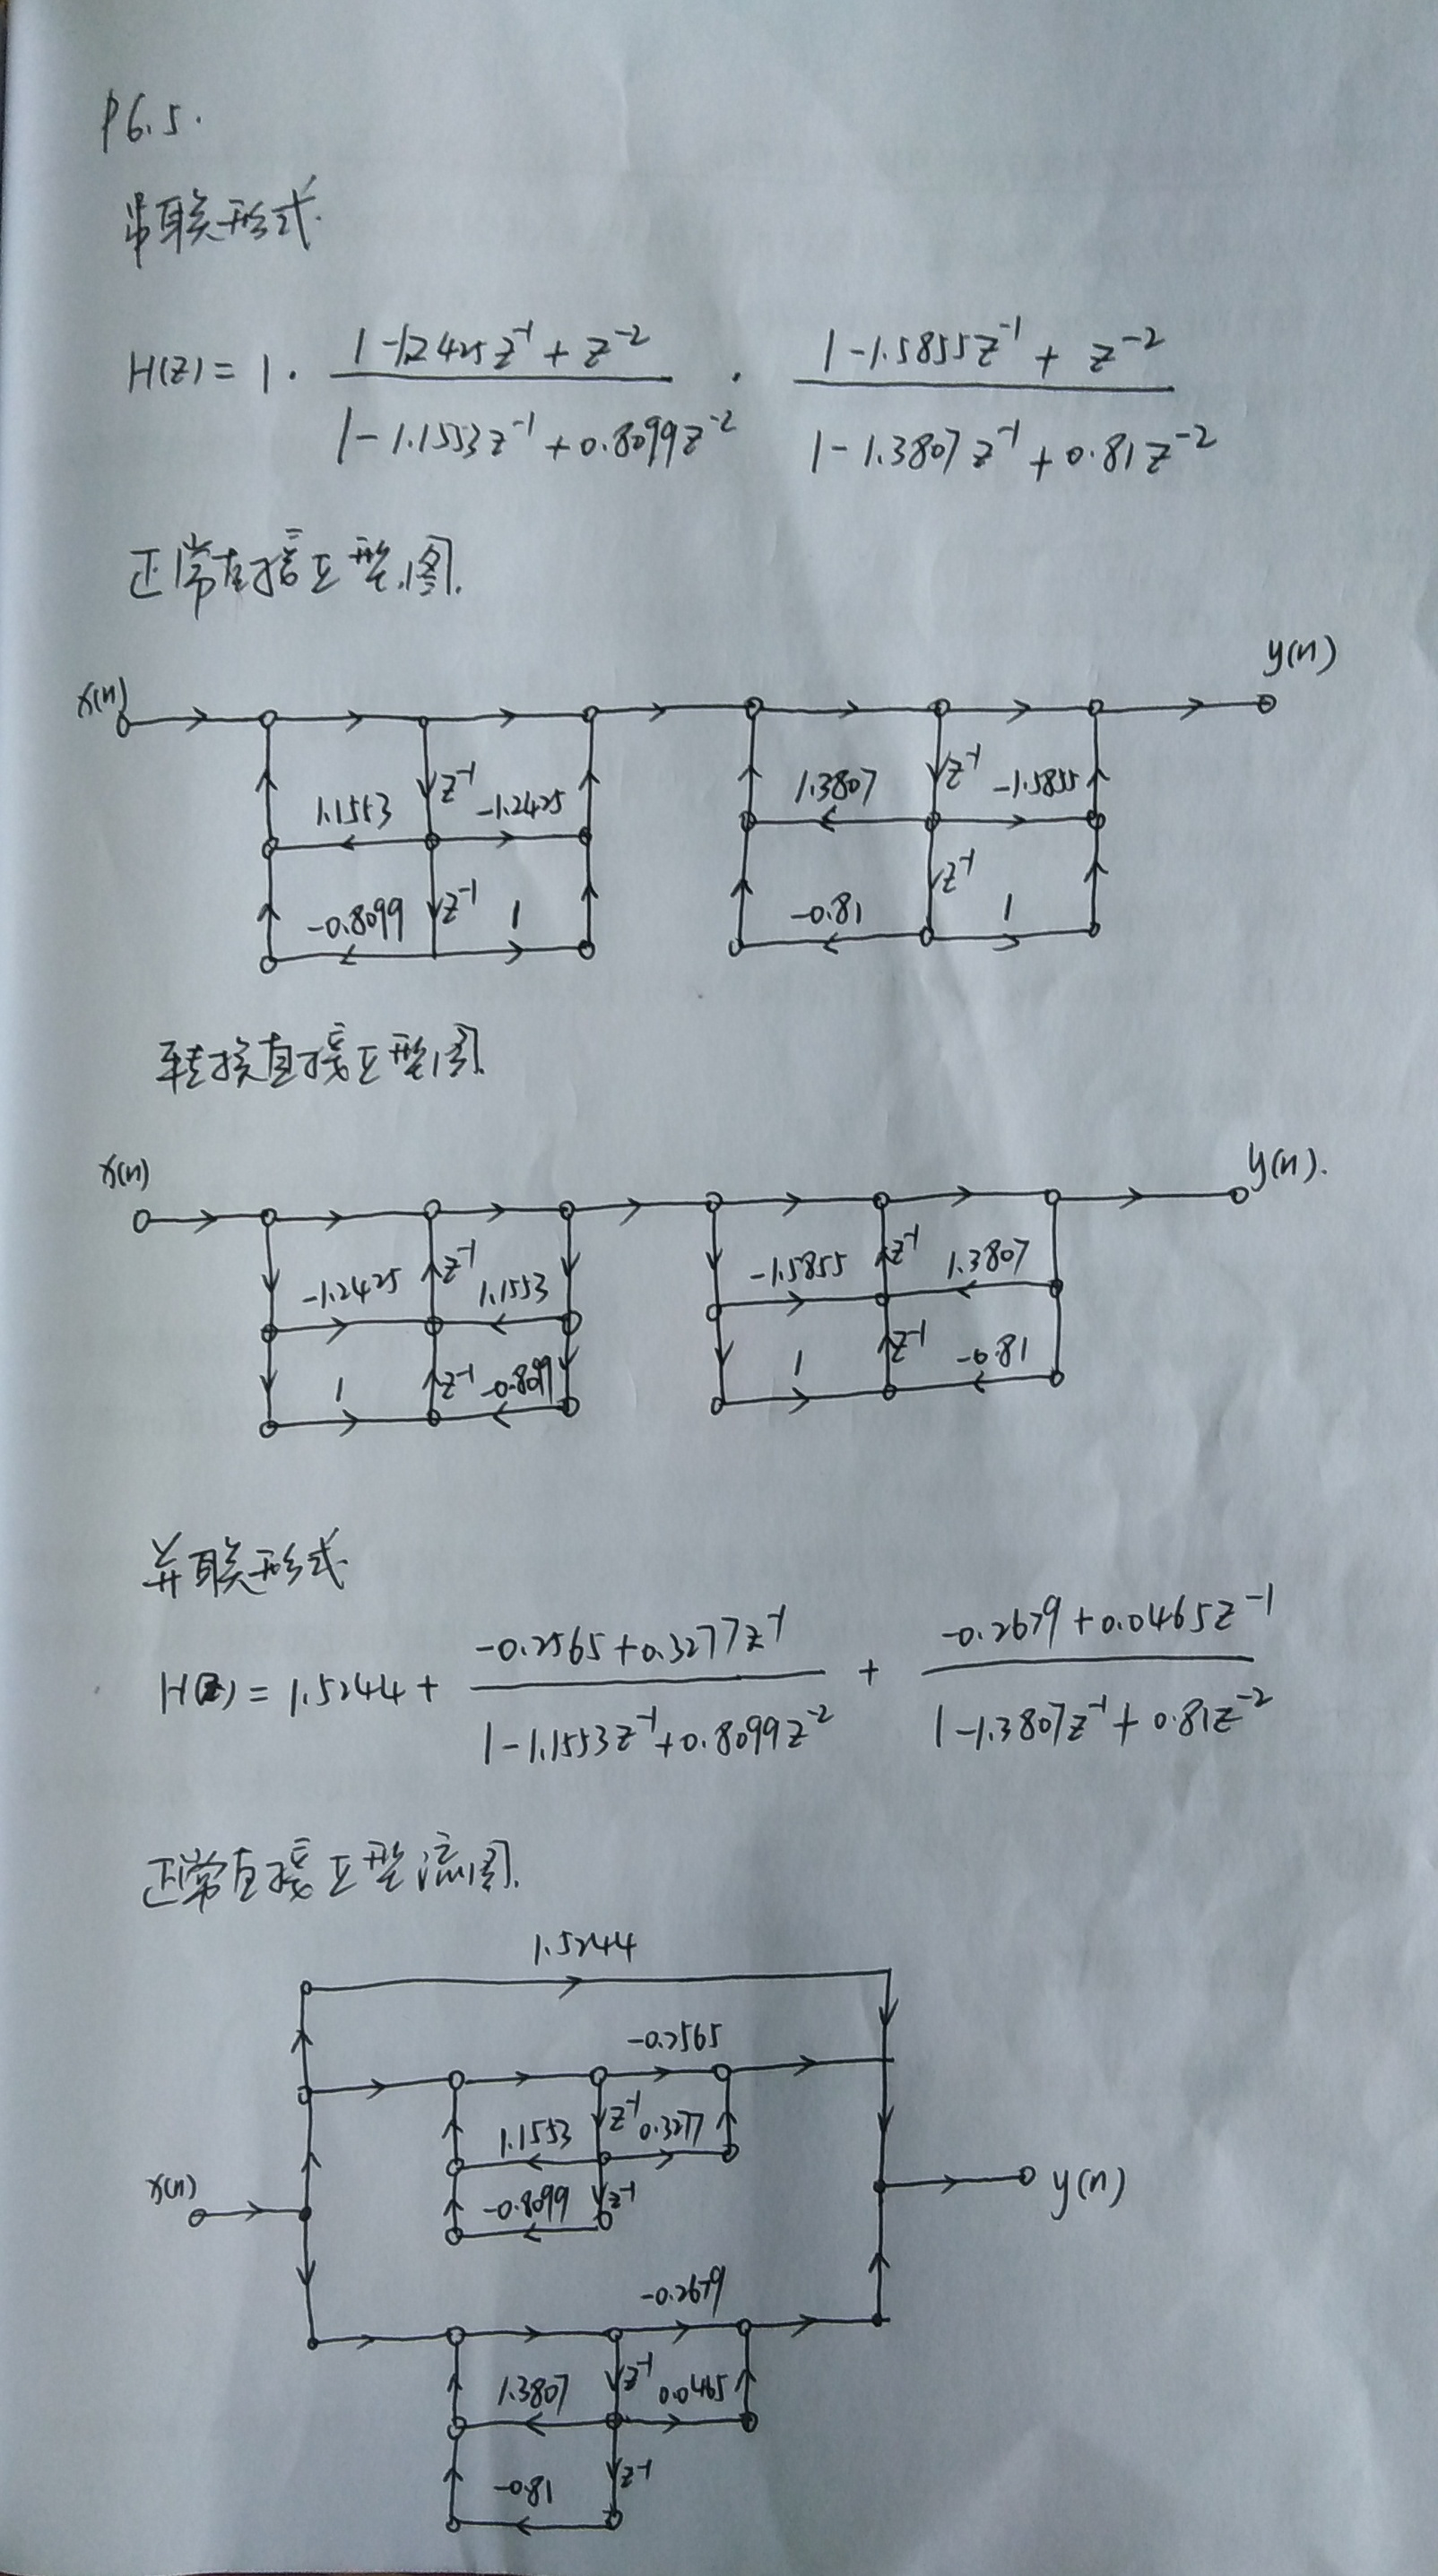 P6.5.
串联形式.
H(z) = 1 · (1-1.2425z⁻¹ + z⁻²)/(1-1.1553z⁻¹+0.8099z⁻²) · (1-1.5855z⁻¹ + z⁻²)/(1-1.3807z⁻¹+0.81z⁻²)
正常直接II型图.
x(n) y(n)
z⁻¹ z⁻¹
1.1553 -1.2425 1.3807 -1.5855
z⁻¹ z⁻¹
-0.8099 1 -0.81 1
转换直接II型图.
x(n) y(n).
z⁻¹ z⁻¹
-1.2425 1.1553 -1.5855 1.3807
z⁻¹ z⁻¹
1 -0.8099 1 -0.81
并联形式.
H(z) = 1.5244 + (-0.2565+0.3277z⁻¹)/(1-1.1553z⁻¹+0.8099z⁻²) + (-0.2679+0.0465z⁻¹)/(1-1.3807z⁻¹+0.81z⁻²)
正常直接II型流图.
1.5244
-0.2565
1.1553 z⁻¹ 0.3277
x(n) -0.8099 z⁻¹ y(n)
-0.2679
1.3807 z⁻¹ 0.0465
-0.81 z⁻¹